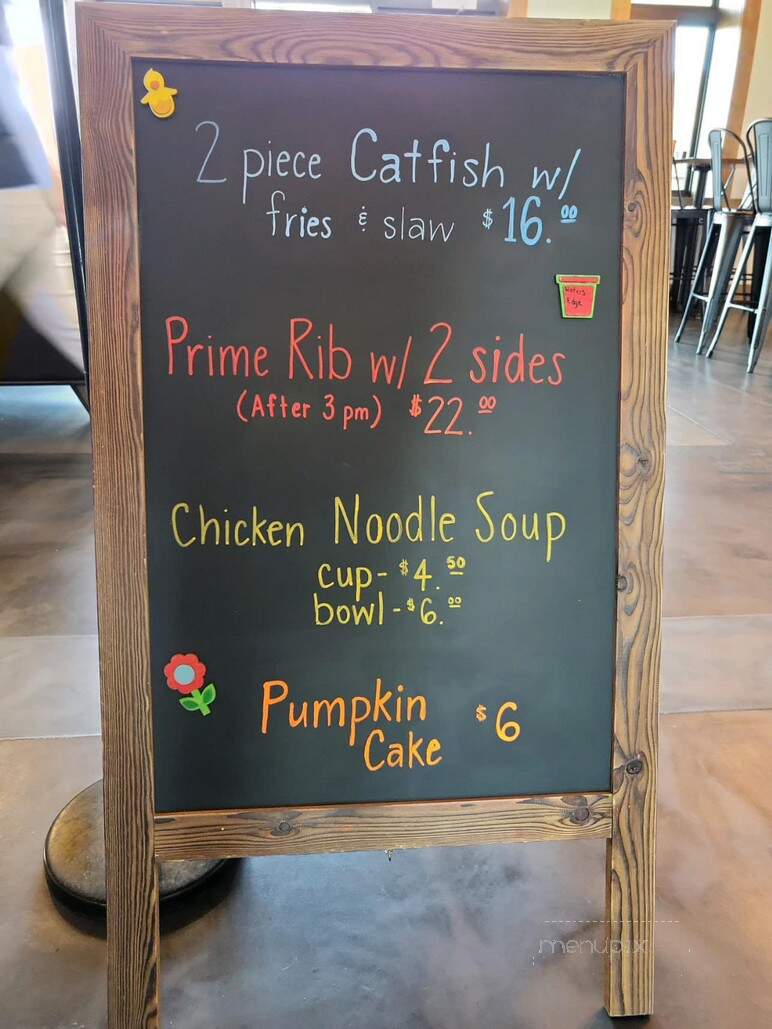 2 piece Catfish w/
fries & slaw $16.00
Waters
Edge
Prime Rib w/ 2 sides
(After 3 pm) $22.00
Chicken Noodle Soup
cup - $4.50
bowl - $6.00
Pumpkin $6
Cake
menupix